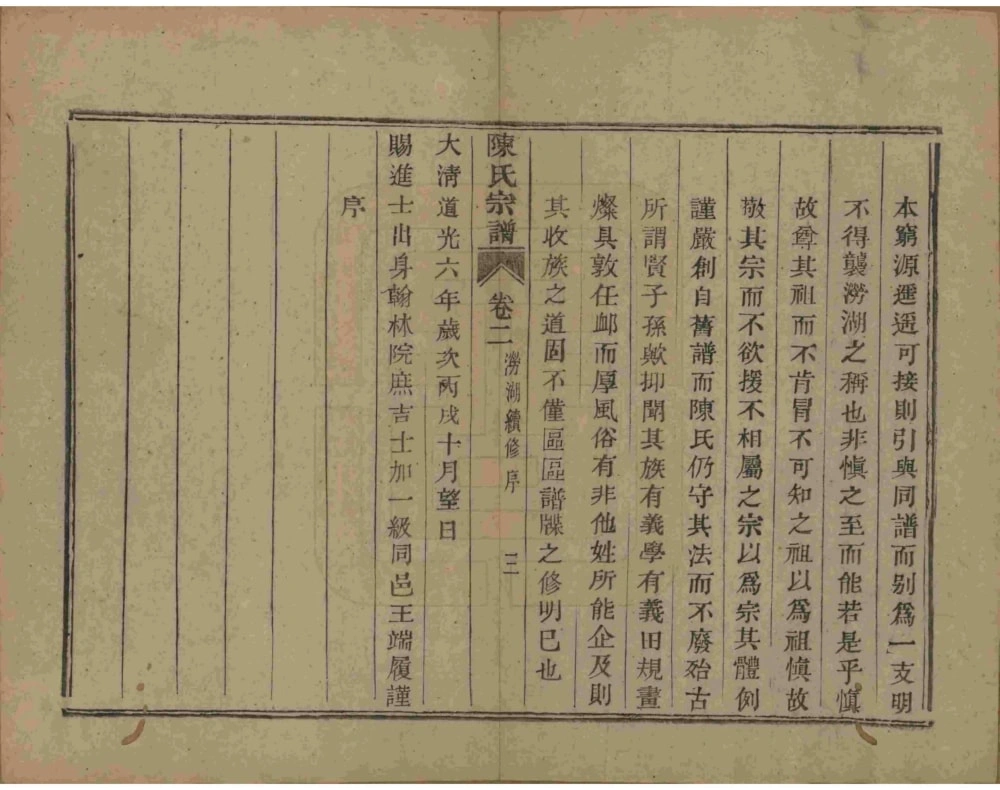 本窮源遥遥可接則引與同譜而别爲一支明
不得襲澇湖之稱也非慎之至而能若是乎慎
故尊其祖而不肯冒不可知之祖以爲祖慎故
敬其宗而不欲援不相屬之宗以爲宗其體例
謹嚴創自舊譜而陳氏仍守其法而不廢殆古
所謂賢子孫歟抑聞其族有義學有義田規畫
燦具敦任䘏而厚風俗有非他姓所能企及則
其收族之道固不僅區區譜牒之修明巳也
陳氏宗譜 卷二 澇湖續修序 三
大清道光六年歲次丙戌十月望日
賜進士出身翰林院庶吉士加一級同邑王端履謹
序